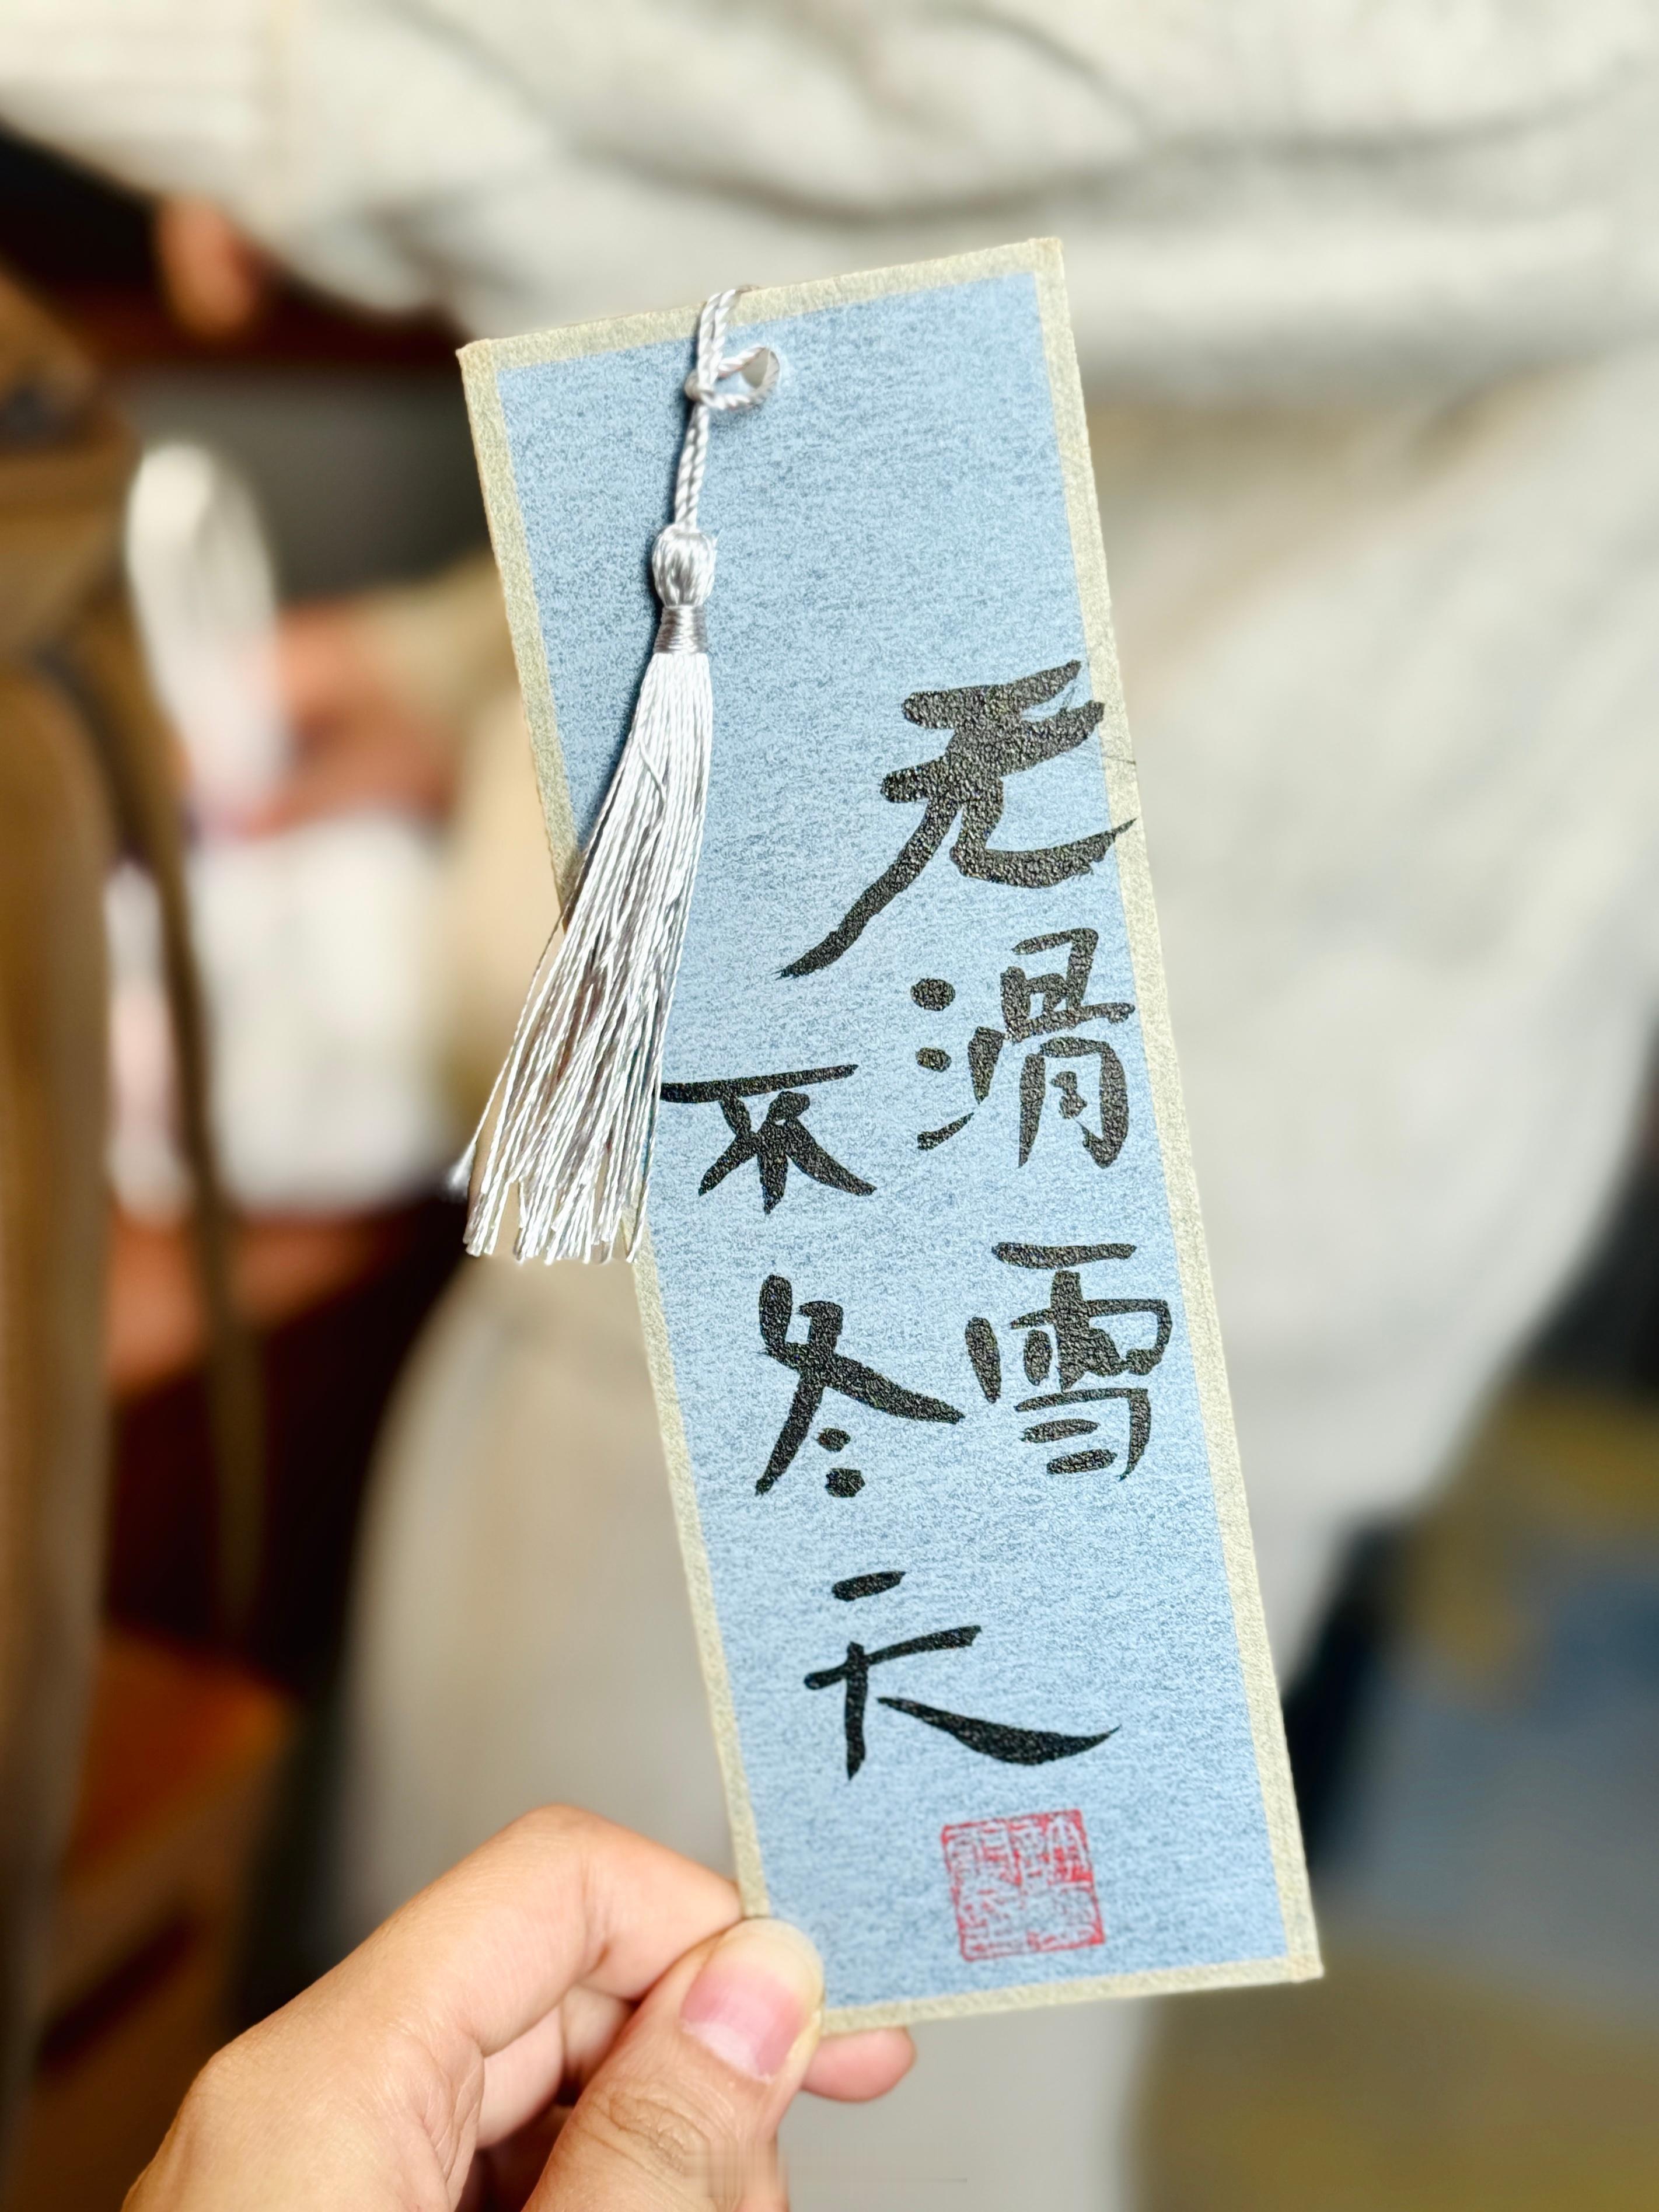 无滑雪
不冬天